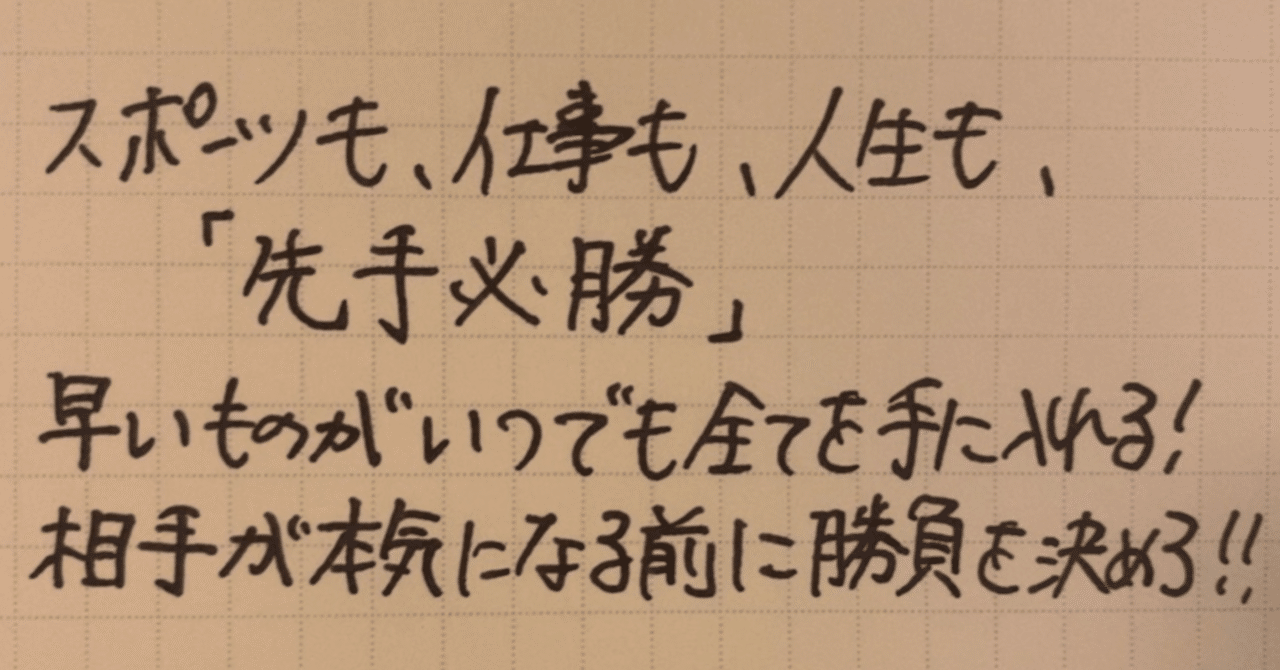 スポーツも、仕事も、人生も、
「先手必勝」
早いものがいつでも全てを手に入れる!
相手が本気になる前に勝負を決めろ!!